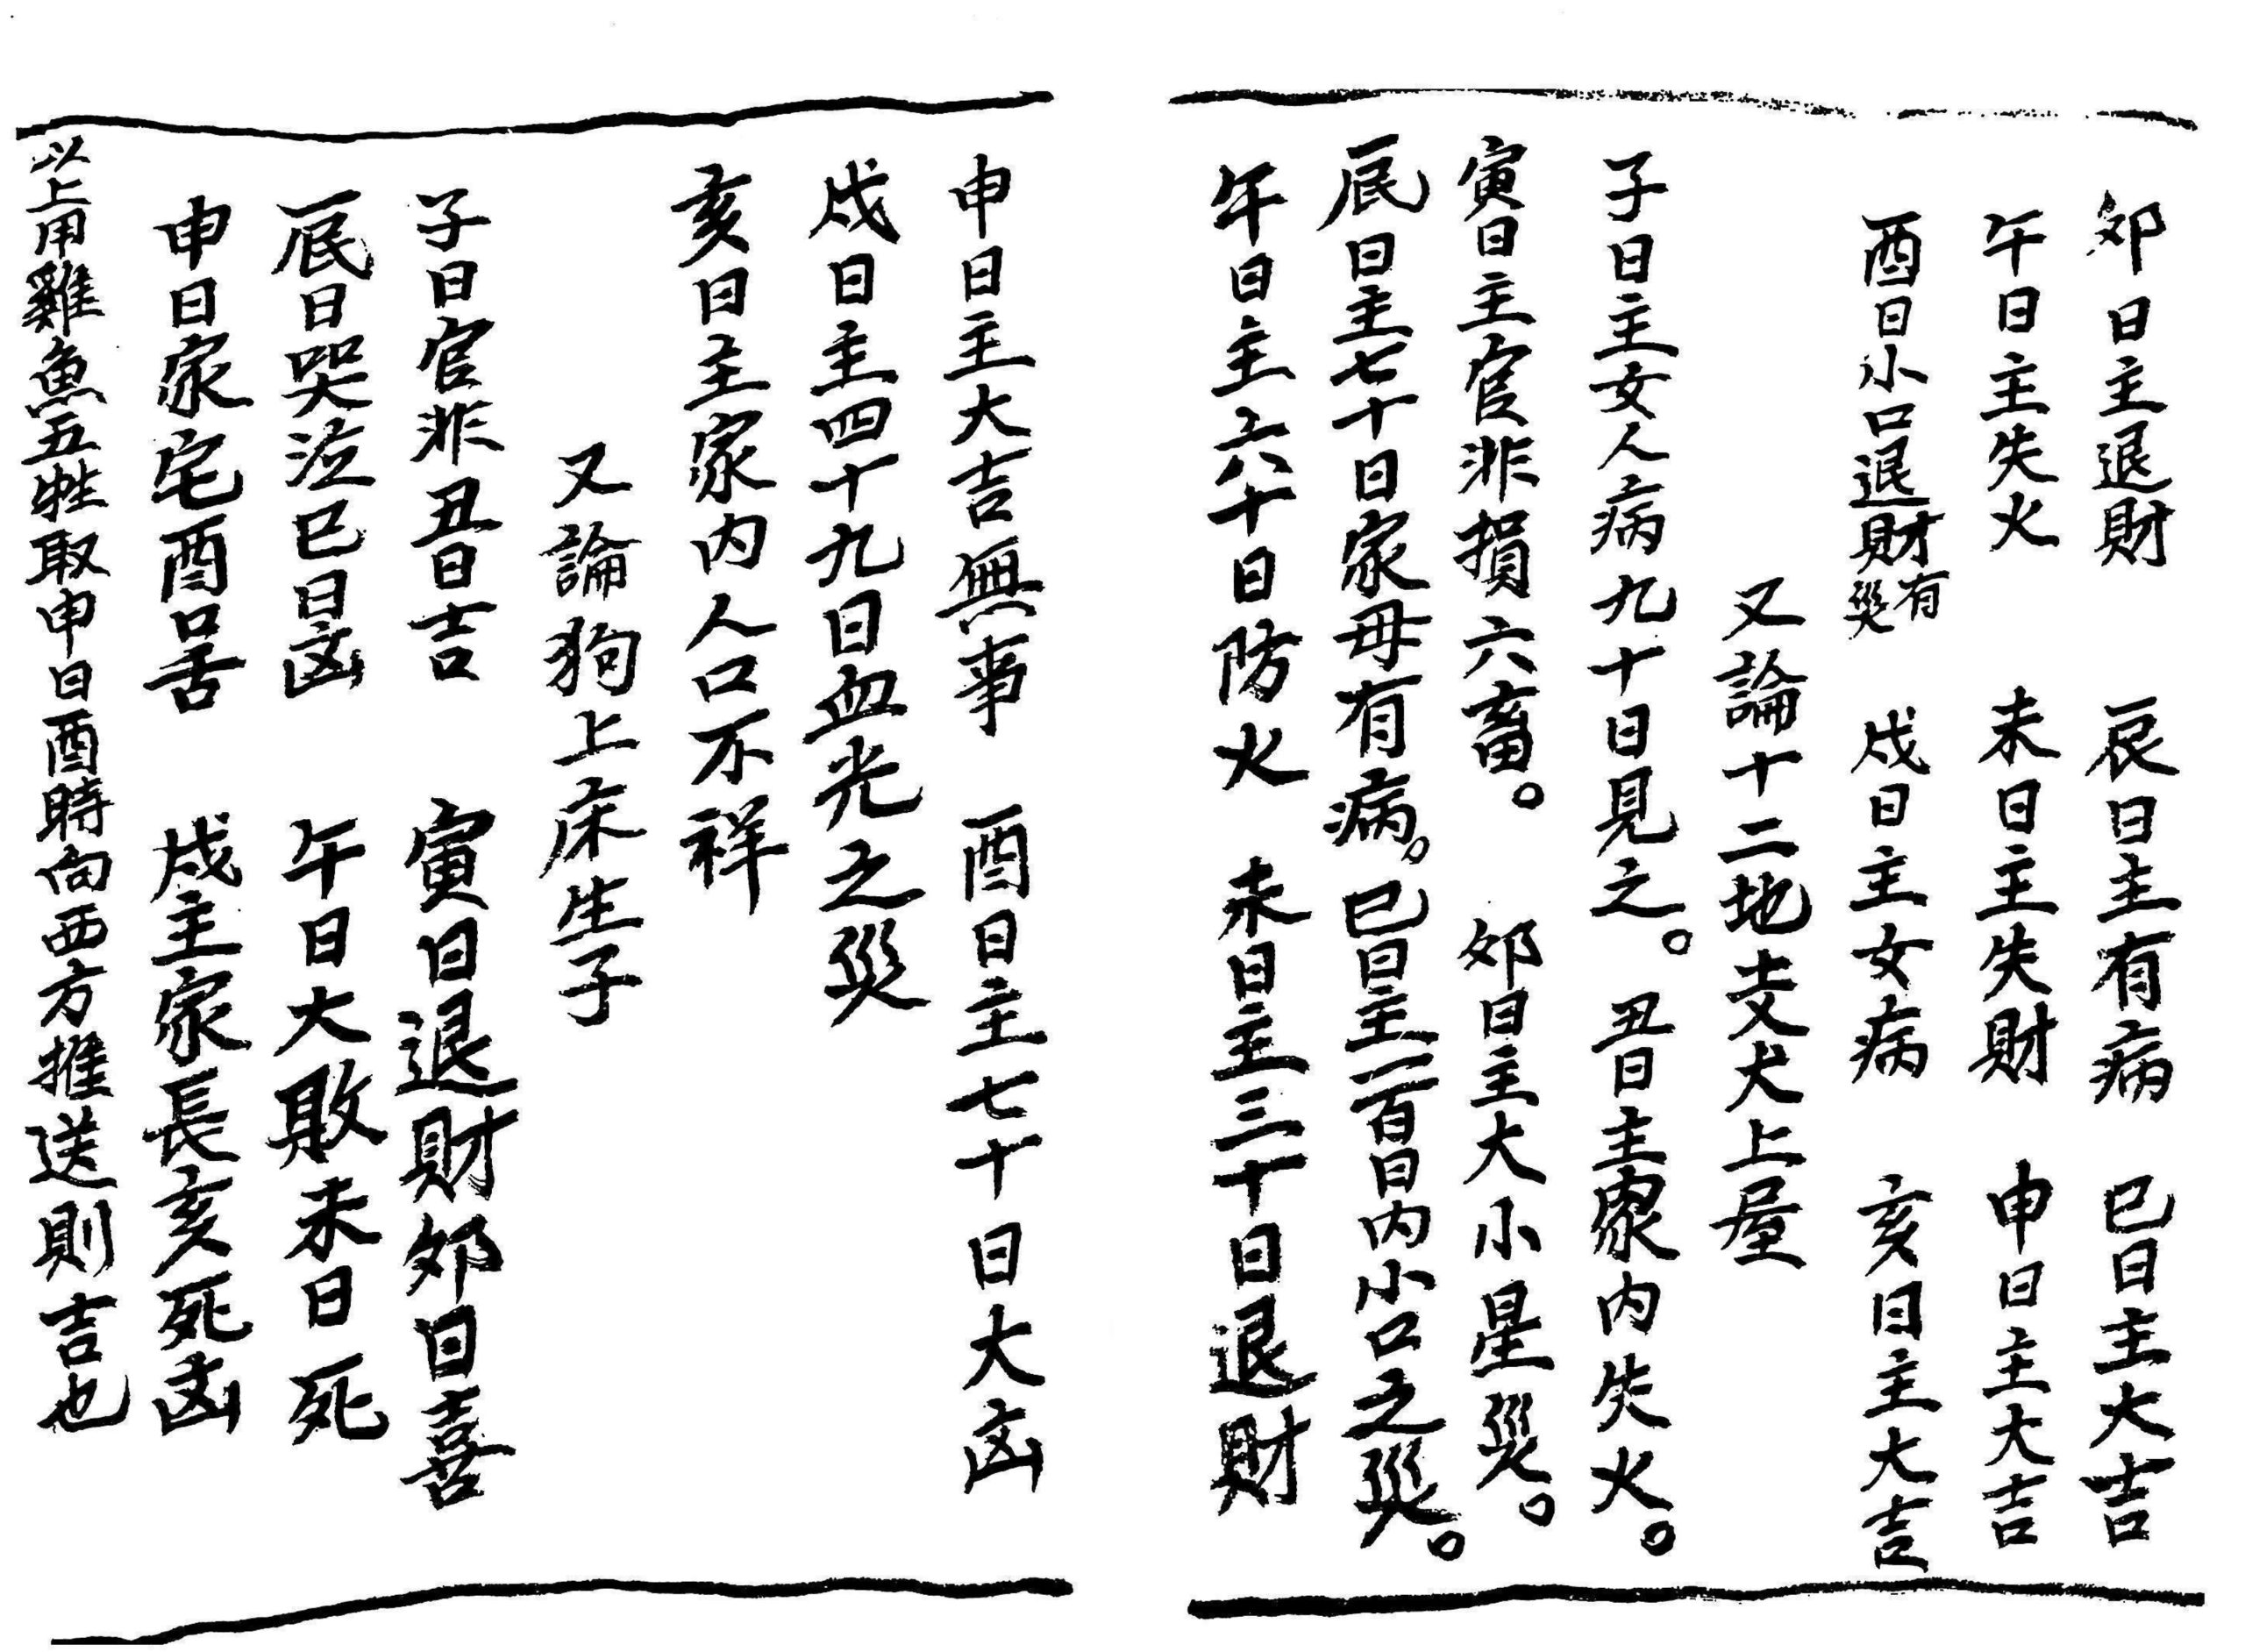 卯日主退財　辰日主有病　巳日主大吉
午日主失火　未日主失財　申日主大吉
酉日小口退財有災　戌日主女病　亥日主大吉
又論十二地支犬上屋
子日主女人病九十日見之。丑日主家内失火。
寅日主官非損六畜。卯日主大小星災。
辰日主七十日家母有病。巳日主一百日内小口之災。
午日主六十日防火　未日主三十日退財
申日主大吉無事　酉日主七十日大凶
戌日主四十九日血光之災
亥日主家内人口不祥
又論狗上床生子
子日官非丑日吉　寅日退財卯日喜
辰日哭泣巳日凶　午日大敗未日死
申日家宅酉口舌　戌主家長亥死凶
以上用雞魚五牲取申日酉時向西方推送則吉也